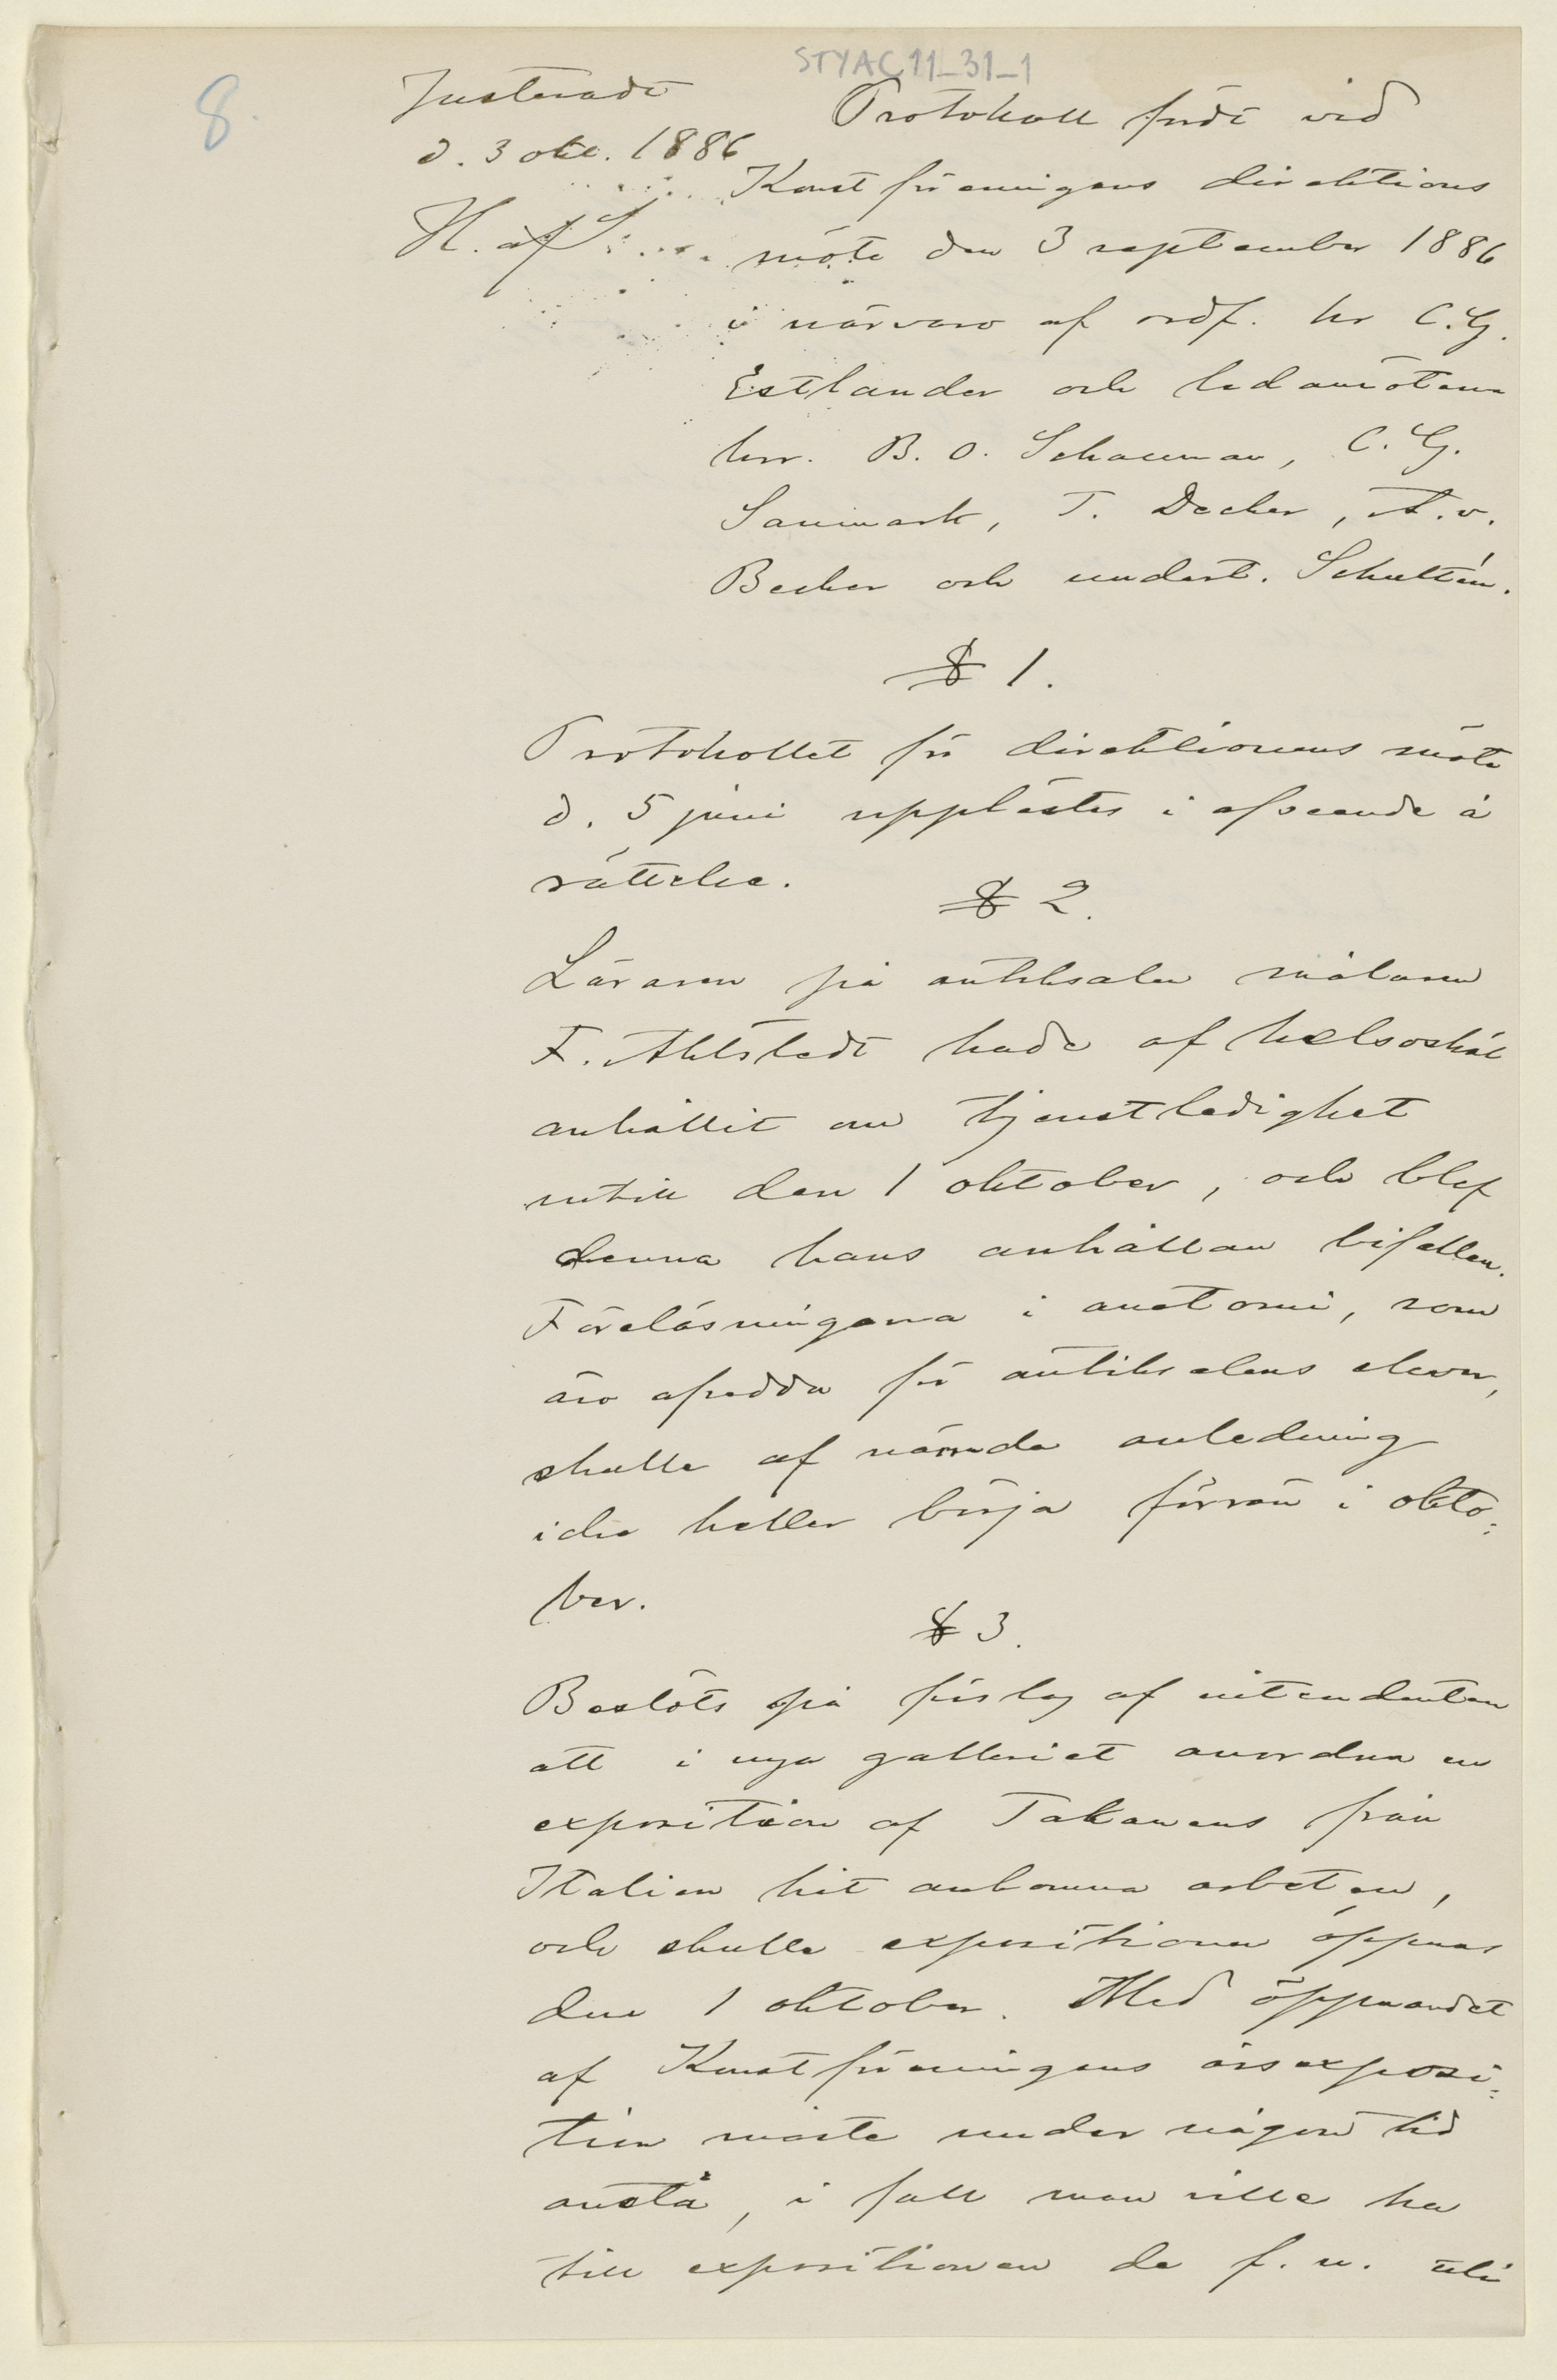 STYAC11_31_1
8.
Justeradt
d. 3 okt. 1886
H. af S
Protokoll fördt vid
Konstföreningens direktions
möte den 3 september 1886
i närvaro af ordf. hr C. G.
Estlander och ledamöterna
hrr. B. O. Schauman, C. G.
Sanmark, T. Decker, A. v.
Becker och undert. Schultén.
§ 1.
Protokollet för direktionens möte
d. 5 juni upplästes i afseende å
rättelse.
§ 2.
Läraren på antiksalen målaren
F. Ahlstedt hade af helsoskäl
anhållit om tjenstledighet
intill den 1 oktober, och blef
denna hans anhållan bifallen.
Föreläsningarna i anatomi, som
äro afsedda för antiksalens elever,
skulle af nämnda anledning
icke heller börja förrän i okto-
ber.
§ 3.
Beslöts på förslag af intendenten
att i nya galleriet anordna en
exposition af Takanens från
Italien hit ankomna arbeten,
och skulle expositionen öppnas
den 1 oktober. Med öppnandet
af Konstföreningens årsexposi-
tion måste under någon tid
anstå, i fall man ville ha
till expositionen de f. n. uti